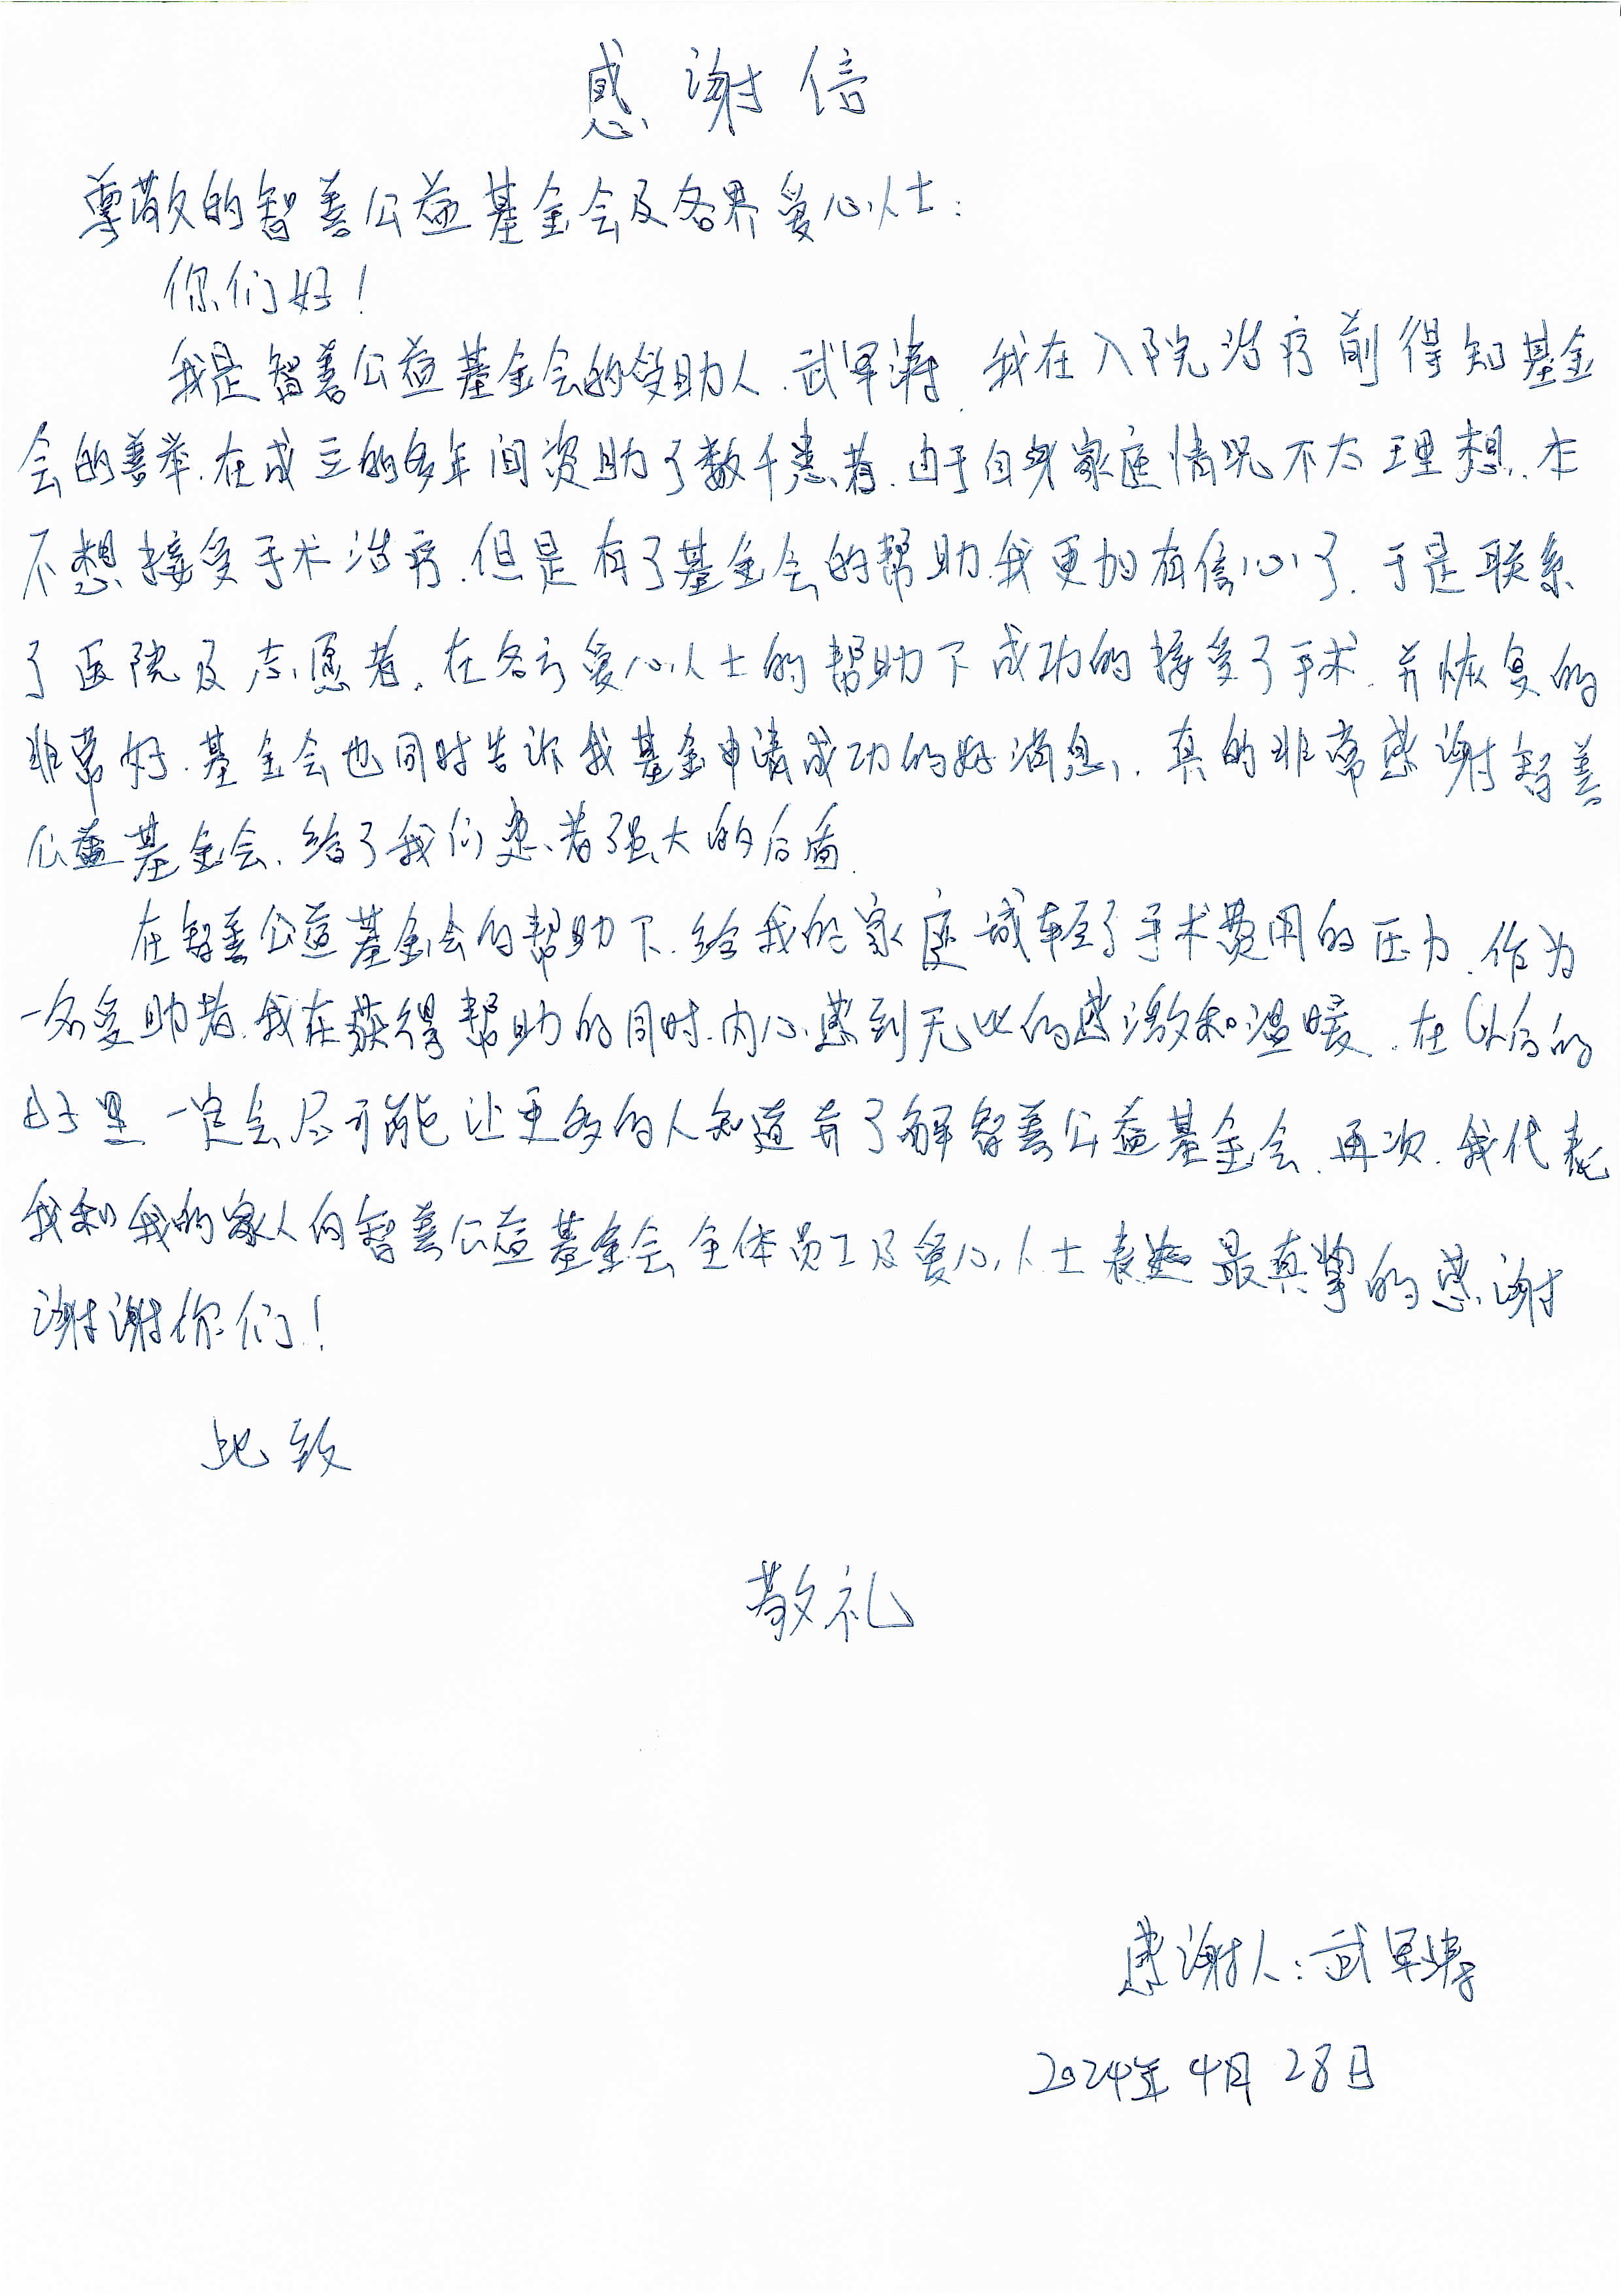 感谢信
尊敬的智善公益基金会及各界爱心人士:
你们好!
我是智善公益基金会的受助人.武军涛.我在入院治疗前得知基金
会的善举.在成立的多年间资助了数千患者.由于自身家庭情况不太理想.本
不想接受手术治疗.但是有了基金会的帮助.我更加有信心了.于是联系
了医院及志愿者.在各方爱心人士的帮助下成功的接受了手术.并恢复的
非常好.基金会也同时告诉我基金申请成功的好消息.真的非常感谢智善
公益基金会、给了我们患者强大的后盾.
在智善公益基金会的帮助下.给我的家庭减轻了手术费用的压力.作为
一名受助者.我在获得帮助的同时.内心感到无比的感激和温暖.在以后的
日子里一定会尽可能让更多的人知道并了解智善公益基金会.再次.我代表
我和我的家人向智善公益基金会全体员工及爱心人士表达最真挚的感谢
谢谢你们!
此致
敬礼
感谢人:武军涛
2024年4月28日